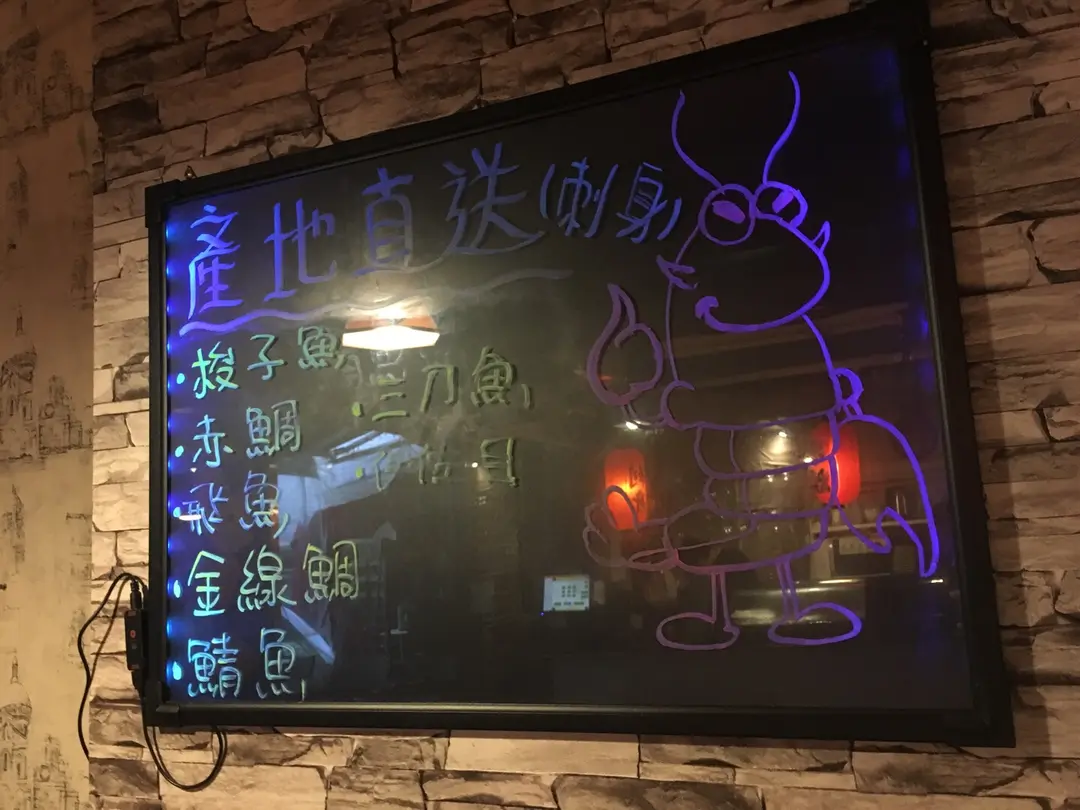 產地直送(刺身)
·梭子魚
·赤鯛
·飛魚
·金線鯛
·鯖魚
·三刀魚